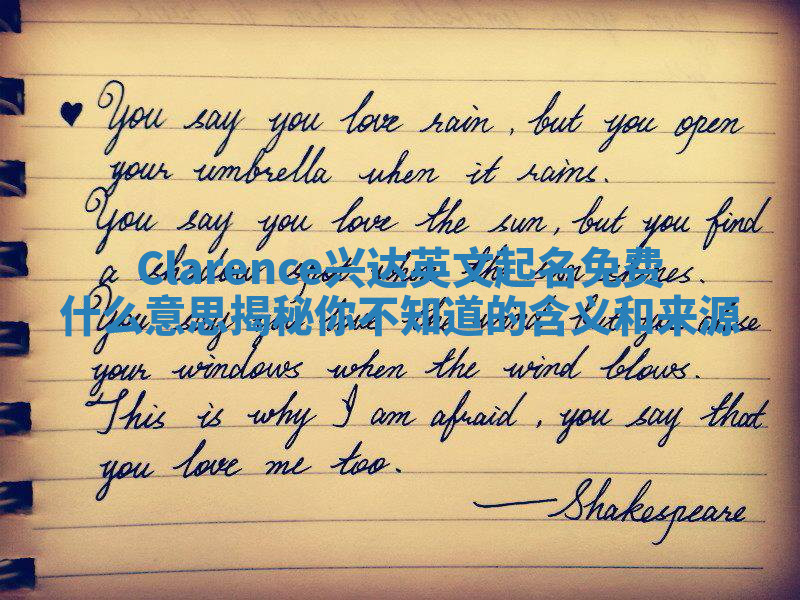 ♥ You say you love rain, but you open
your umbrella when it rains.
You say you love the sun, but you find
a shadow spot when the sun shines.
Clarence兴达英文起名免费
You say you love the wind, but you close
什么意思揭秘你不知道的含义和来源
your windows when the wind blows.
This is why I am afraid, you say that
you love me too.
—Shakespeare